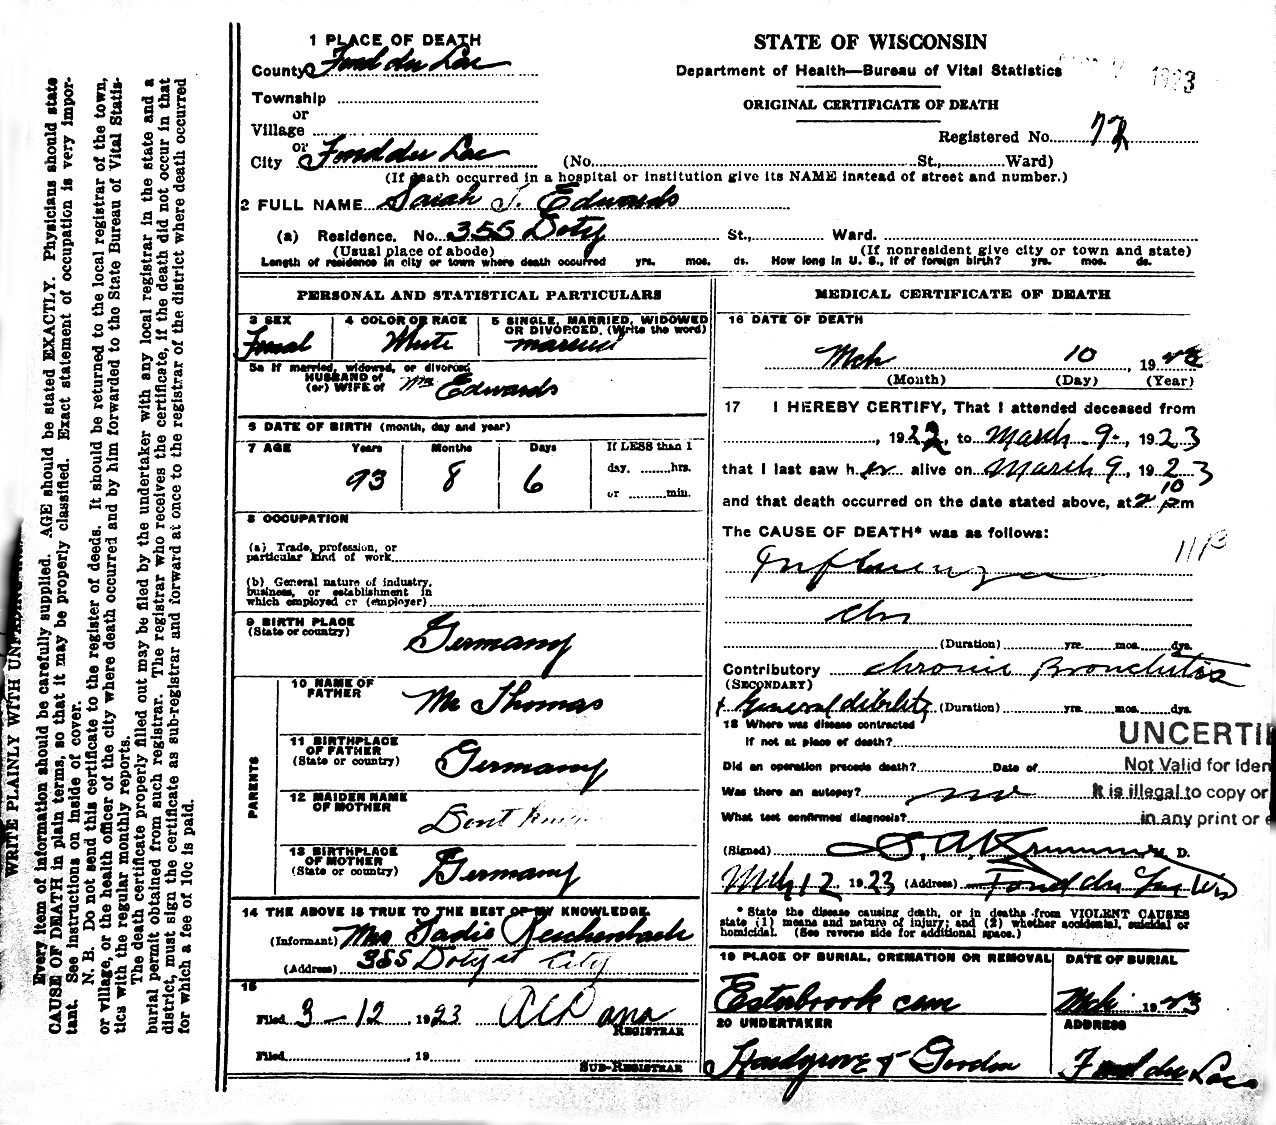 STATE OF WISCONSIN
Department of Health—Bureau of Vital Statistics
1923
ORIGINAL CERTIFICATE OF DEATH
Registered No.
1 PLACE OF DEATH
County Fond du Lac
Township
or
Village
or
City Fond du Lac (No. St., Ward)
(If death occurred in a hospital or institution give its NAME instead of street and number.)
2 FULL NAME Sarah J. Edwards
(a) Residence. No. 355 Doty St., Ward.
(Usual place of abode) (If nonresident give city or town and state)
Length of residence in city or town where death occurred yrs. mos. ds. How long in U. S., if of foreign birth? yrs. mos. ds.
PERSONAL AND STATISTICAL PARTICULARS
3 SEX
Femal
4 COLOR OR RACE
White
5 SINGLE, MARRIED, WIDOWED
OR DIVORCED, (Write the word)
married
5a If married, widowed, or divorced
HUSBAND of
(or) WIFE of Mr Edwards
6 DATE OF BIRTH (month, day and year)
7 AGE Years Months Days
93 8 6
If LESS than 1
day, hrs.
or min.
8 OCCUPATION
(a) Trade, profession, or
particular kind of work
(b) General nature of industry,
business, or establishment in
which employed or (employer)
9 BIRTH PLACE
(State or country) Germany
PARENTS
10 NAME OF
FATHER Mr Thomas
11 BIRTHPLACE
OF FATHER
(State or country) Germany
12 MAIDEN NAME
OF MOTHER Dont know
13 BIRTHPLACE
OF MOTHER
(State or country) Germany
14 THE ABOVE IS TRUE TO THE BEST OF MY KNOWLEDGE.
(Informant) Mrs Sadie Reichenbach
(Address) 355 Doty st City
15
Filed 3-12 1923
REGISTRAR
Filed , 19
SUB-REGISTRAR
MEDICAL CERTIFICATE OF DEATH
16 DATE OF DEATH
Mch 10 1923
(Month) (Day) (Year)
17 I HEREBY CERTIFY, That I attended deceased from
, 1922, to March 9-, 1923
that I last saw her alive on March 9, 1923
and that death occurred on the date stated above, at 2 10 pm
The CAUSE OF DEATH* was as follows:
Influenza
(Duration) yrs. mos. dys.
Contributory chronic Bronchitis
(SECONDARY)
+ General dibility (Duration) yrs. mos. dys.
18 Where was disease contracted
If not at place of death?
Did an operation precede death? Date of
Was there an autopsy? no
What test confirmed diagnosis?
(Signed) M. D.
Mch 12 1923 (Address) Fond du Lac Wis
* State the disease causing death, or in deaths from VIOLENT CAUSES
state (1) means and nature of injury; and (2) whether accidental, suicidal or
homicidal. (See reverse side for additional space.)
19 PLACE OF BURIAL, CREMATION OR REMOVAL
Esterbrook cem
DATE OF BURIAL
Mch 1923
20 UNDERTAKER
Hardgrove & Gordon
ADDRESS
Fond du Lac
UNCERTI
Not Valid for Iden
It is illegal to copy or
in any print or e
WRITE PLAINLY WITH
Every item of information should be carefully supplied. AGE should be stated EXACTLY. Physicians should state
CAUSE OF DEATH in plain terms, so that it may be properly classified. Exact statement of occupation is very impor-
tant. See instructions on inside of cover.
N. B. Do not send this certificate to the register of deeds. It should be returned to the local registrar of the town,
or village, or the health officer of the city where death occurred and by him forwarded to the State Bureau of Vital Statis-
tics with the regular monthly reports.
The death certificate properly filled out may be filed by the undertaker with any local registrar in the state and a
burial permit obtained from such registrar. The registrar who receives the certificate, if the death did not occur in that
district, must sign the certificate as sub-registrar and forward at once to the registrar of the district where death occurred
for which a fee of 10c is paid.